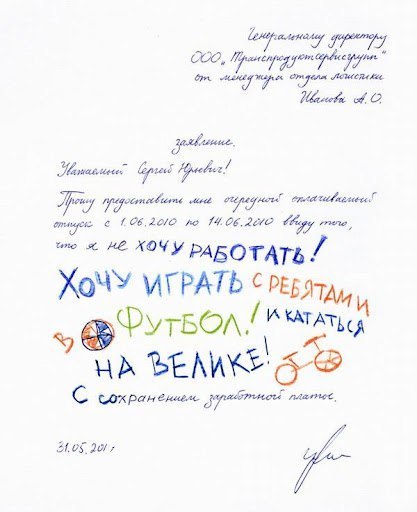 Генеральному директору
ООО „Транспродуктсервисгрупп"
от менеджера отдела логистики
Иванова А.О.
заявление.
Уважаемый Сергей Юрьевич!
Прошу предоставить мне очередной оплачиваемый
отпуск с 1.06.2010 по 14.06.2010 ввиду того,
что я не хочу РАБОТАТЬ!
ХОЧУ ИГРАТЬ С РЕБЯТАМИ
В ФУТБОЛ! И КАТАТЬСЯ
НА ВЕЛИКЕ!
С сохранением заработной платы.
31.05.201г